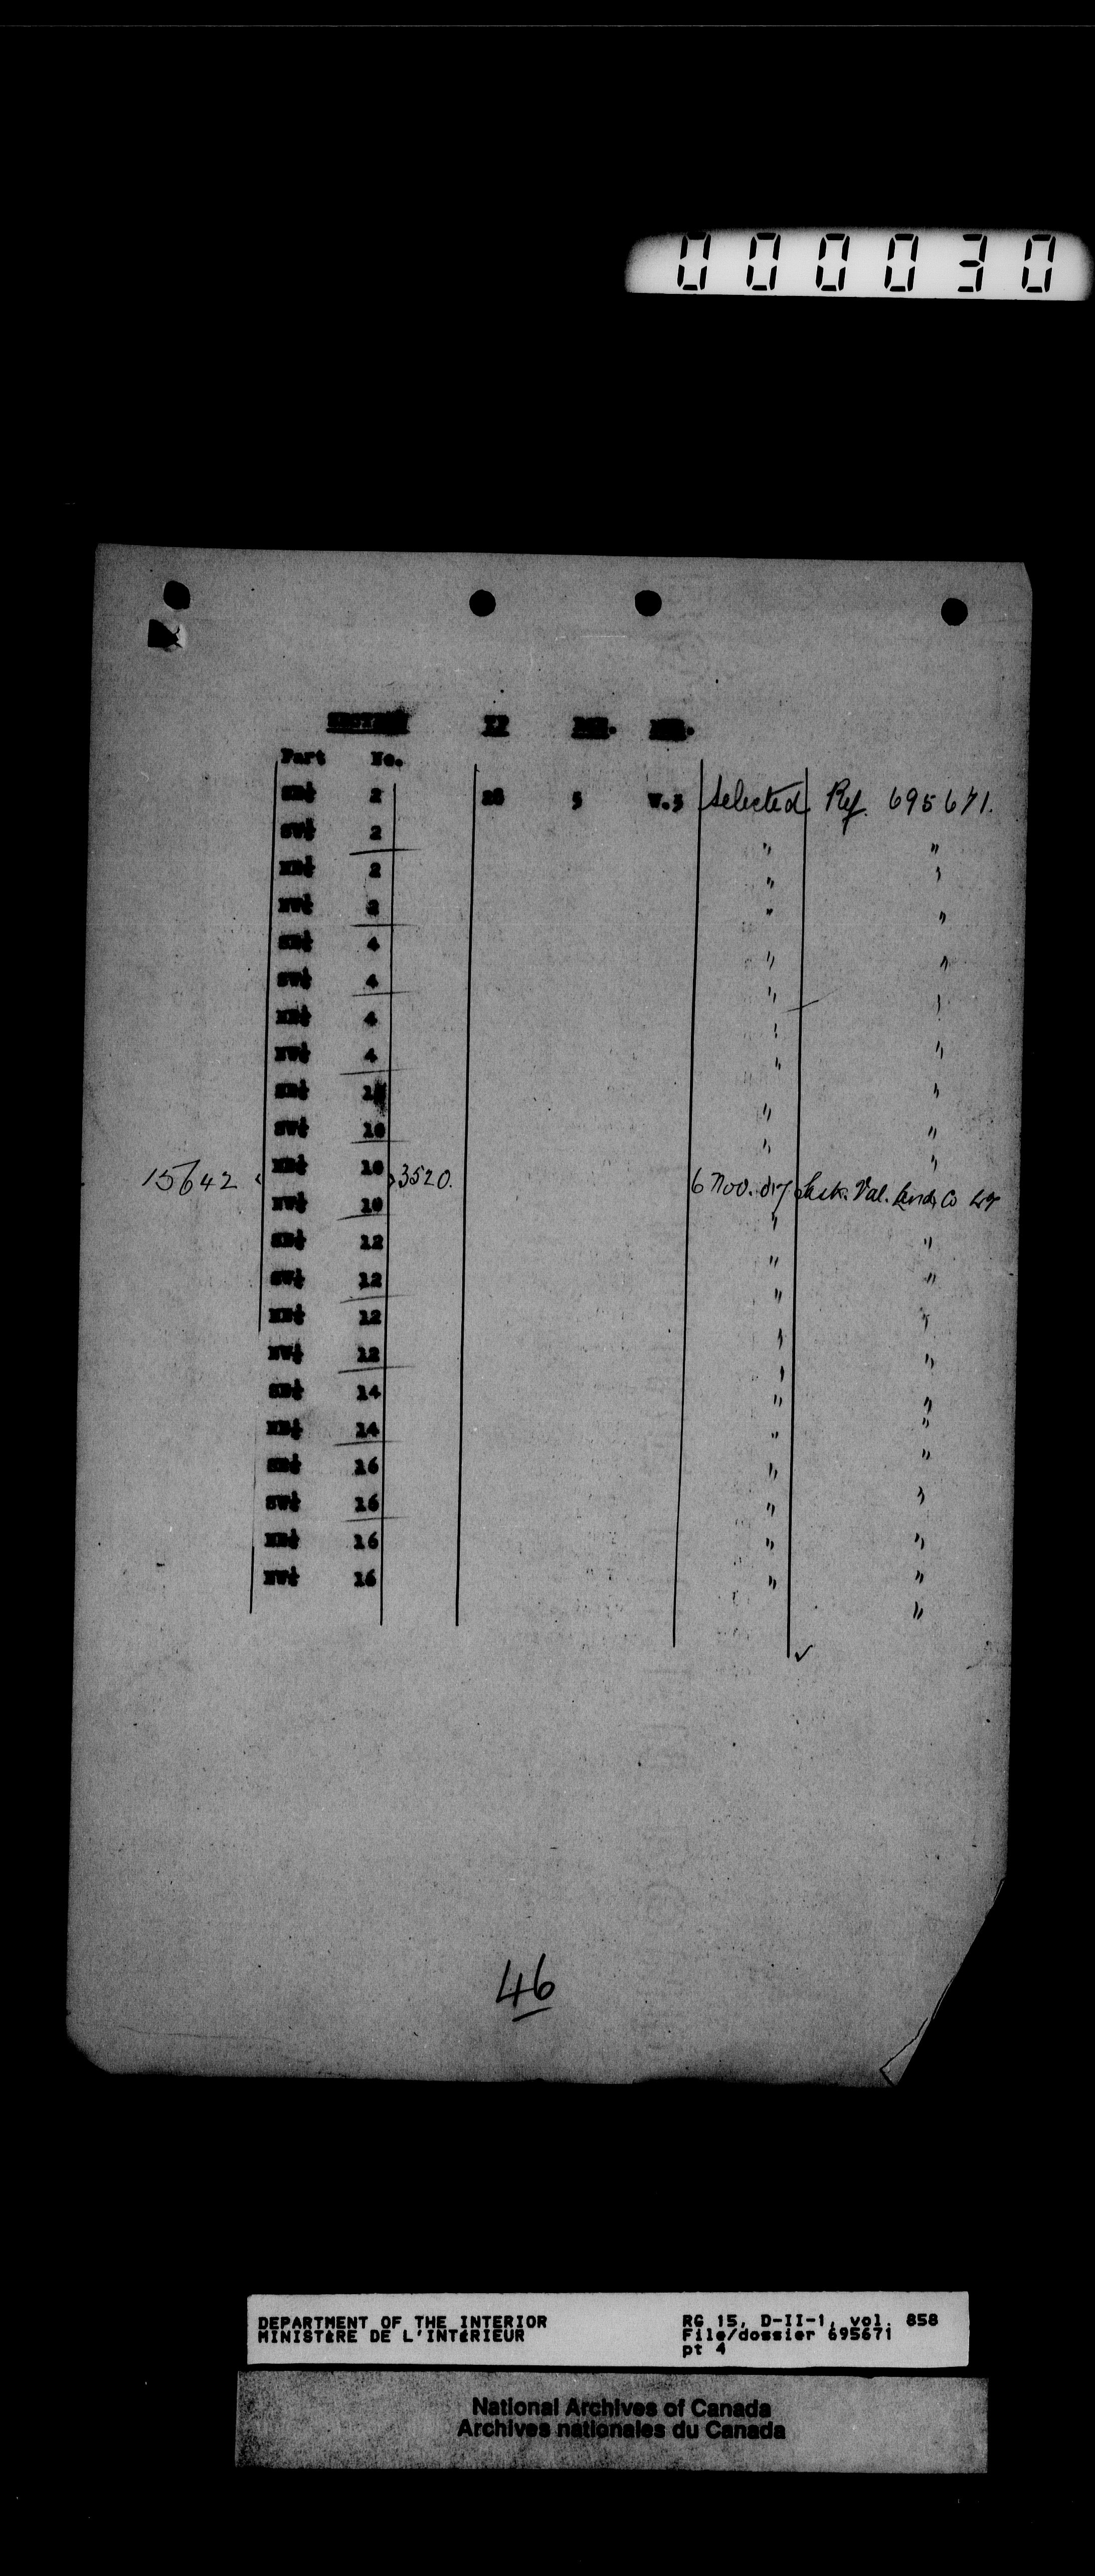 000030
SECTION TP RGE. MER.
Part No.
SE¼ 2 28 5 W.3 Selected Ref. 695671.
SW¼ 2 " "
NE¼ 2 " "
NW¼ 2 " "
SE¼ 4 " "
SW¼ 4 " "
NE¼ 4 " "
NW¼ 4 " "
SE¼ 10 " "
SW¼ 10 " "
15642 NE¼ 10 3520. 6 Nov. 07 Sask. Val. Land Co
NW¼ 10 " "
SE¼ 12 " "
SW¼ 12 " "
NE¼ 12 " "
NW¼ 12 " "
SE¼ 14 " "
NE¼ 14 " "
SE¼ 16 " "
SW¼ 16 " "
NE¼ 16 " "
NW¼ 16 " "
46
DEPARTMENT OF THE INTERIOR RG 15, D-II-1, vol. 858
MINISTÈRE DE L'INTÉRIEUR File/dossier 695671
pt 4
National Archives of Canada
Archives nationales du Canada